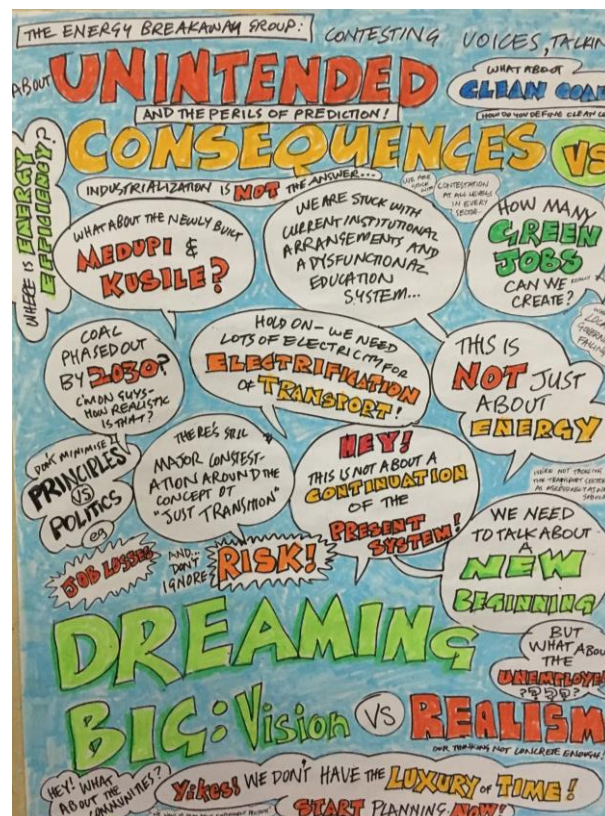 THE ENERGY BREAKAWAY GROUP: CONTESTING VOICES, TALKIN
ABOUT UNINTENDED
WHAT ABOUT
CLEAN COAL
HOW DO YOU DEFINE CLEAN
AND THE PERILS OF PREDICTION!
CONSEQUENCES VS
WHERE IS ENERGY
EFFICIENCY?
INDUSTRIALIZATION IS NOT THE ANSWER...
WE ARE
STUCK WITH
CONTESTATION
AT ALL LEVELS
IN EVERY
SECTOR
WHAT ABOUT THE NEWLY BUILT
MEDUPI &
KUSILE?
WE ARE STUCK WITH
CURRENT INSTITUTIONAL
ARRANGEMENTS AND
A DYSFUNCTIONAL
EDUCATION
SYSTEM...
HOW MANY
GREEN
JOBS
CAN WE REALLY
CREATE?
LOCAL
GOVERN
FAILING
COAL
PHASED OUT
BY 2030?
C'MON GUYS-
HOW REALISTIC
IS THAT?
HOLD ON- WE NEED
LOTS OF ELECTRICITY FOR
ELECTRIFICATION
OF TRANSPORT!
THIS IS
NOT JUST
ABOUT
ENERGY
DON'T MINIMISE
PRINCIPLES
VS
POLITICS
eg
JOB LOSSES
THERE'S STILL
MAJOR CONSTEST-
ATION AROUND THE
CONCEPT OF
"JUST TRANSITION"
AND...
DON'T
IGNORE
RISK!
HEY!
THIS IS NOT ABOUT A
CONTINUATION
OF THE
PRESENT
SYSTEM!
WE'RE NOT TACKLING
THE TRANSPORT SECTOR
AS AGGRESSIVELY AS WE
SHOULD
WE NEED
TO TALK ABOUT
A
NEW
BEGINNING
DREAMING
BIG: Vision VS REALISM
BUT
WHAT ABOU
THE
UNEMPLOYE
?????
OUR THINKING NOT CONCRETE ENOUGH!
HEY! WHAT
ABOUT THE
COMMUNITIES?
Yikes! WE DON'T HAVE THE LUXURY OF TIME!
START PLANNING NOW!